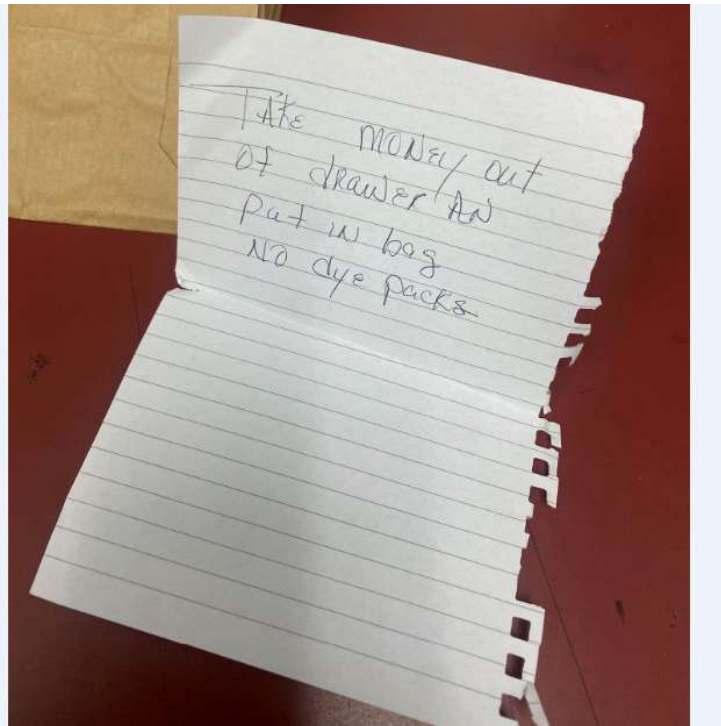 TAKE MONEY out
Of dRAWER AN
Put iN bag
NO dye packs